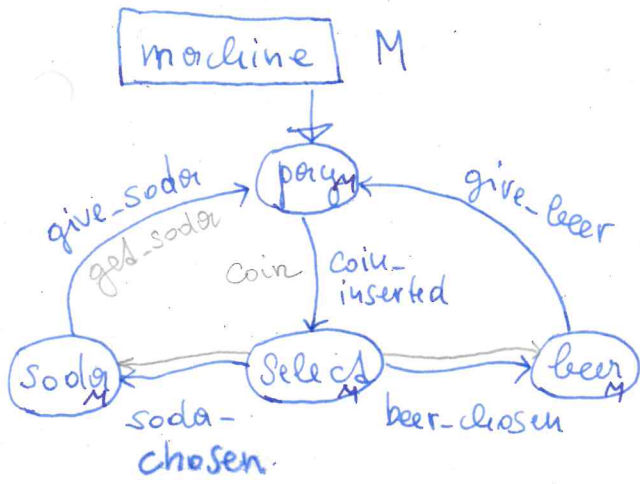 machine M
pay M
give_soda
get_soda
give_beer
coin
coin_
inserted
soda M
select M
beer M
soda-
chosen
beer-chosen